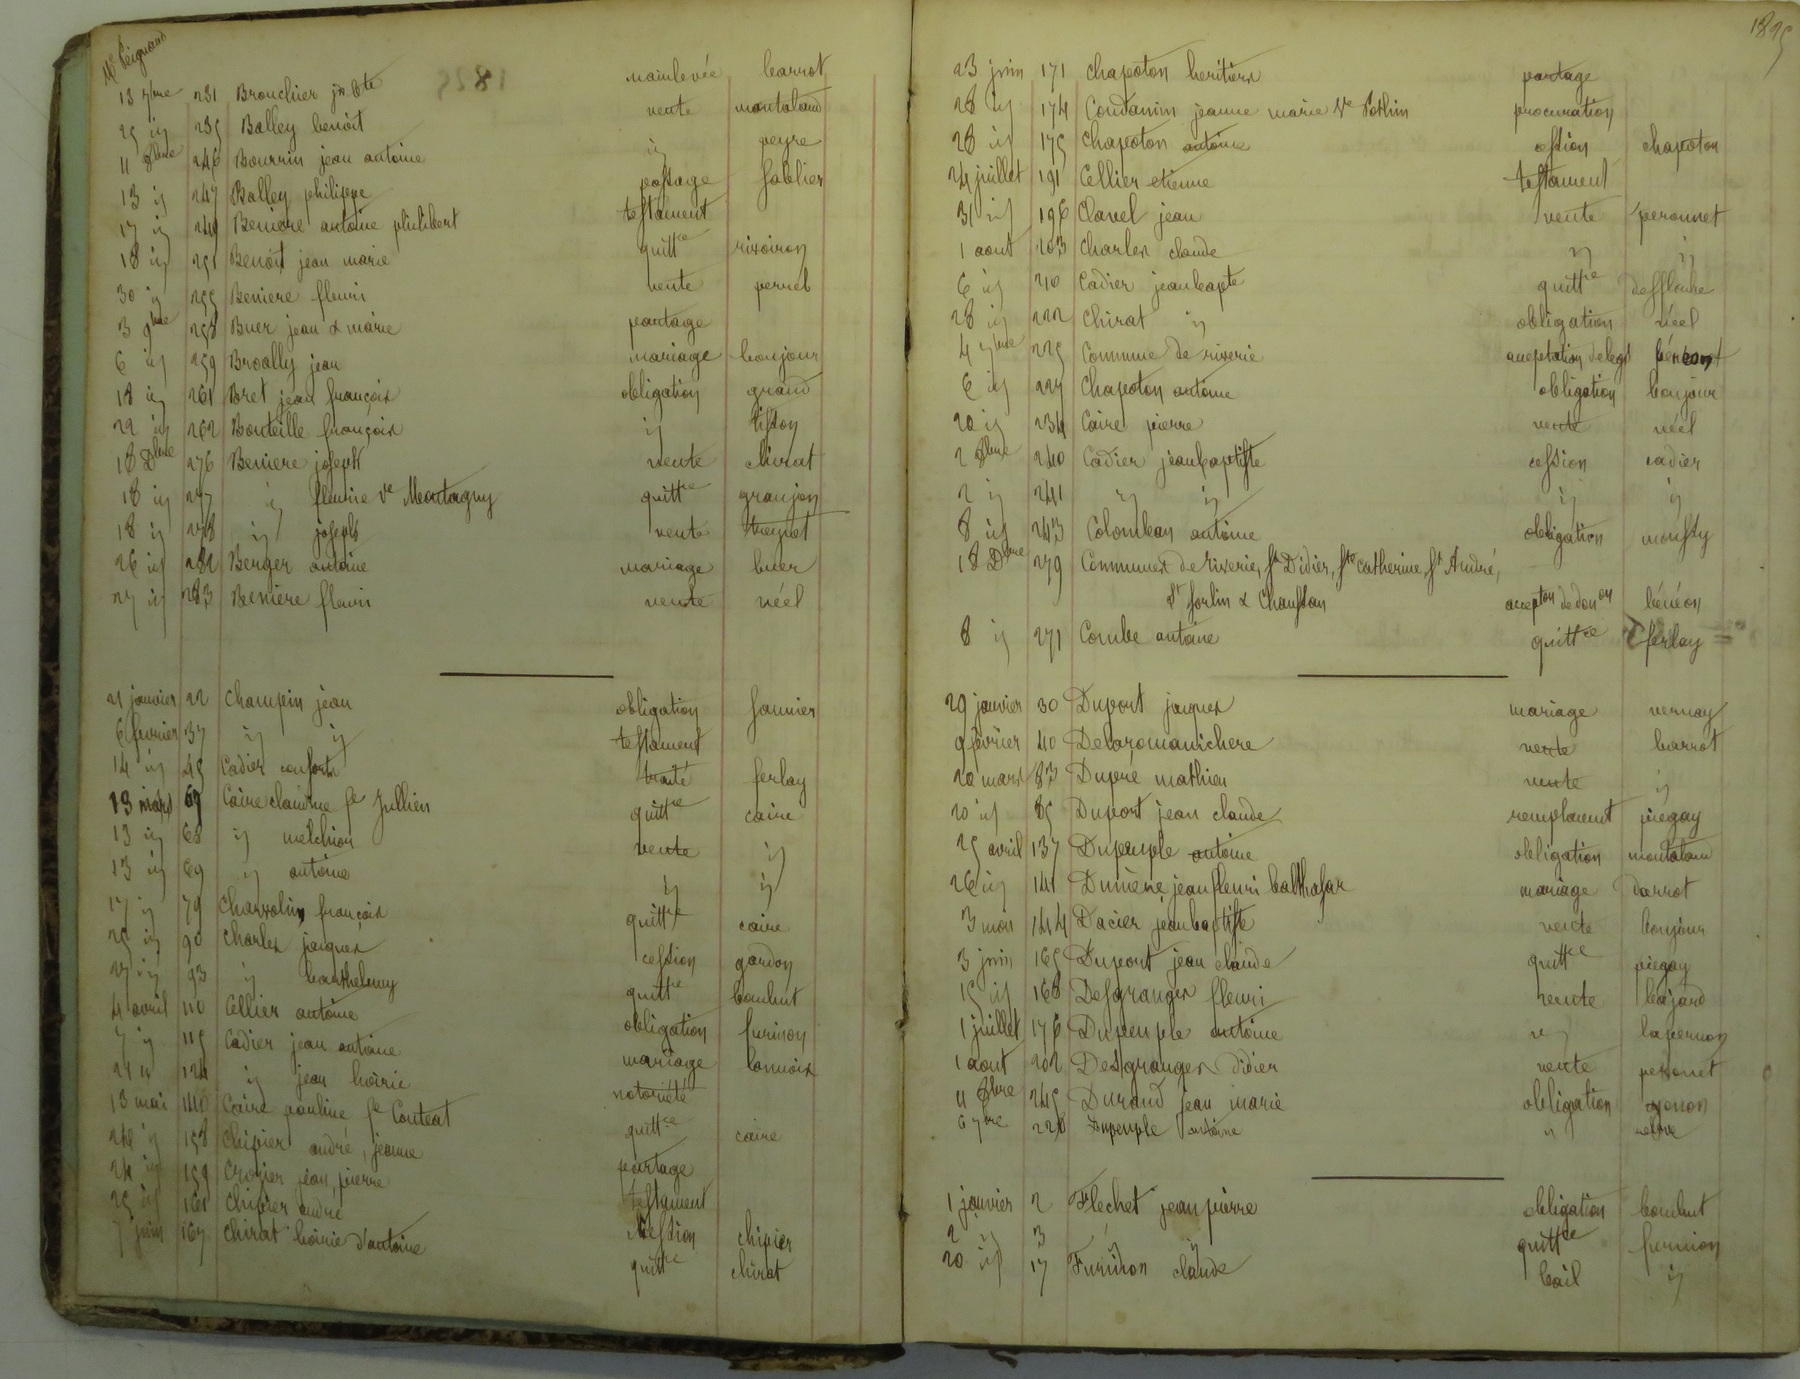 13 7bre 231 Brouchier jn bte mainlevée barrot
25 id 235 Balley benoit vente montaland
11 8bre 246 Bourrin jean antoine id peyre
13 id 247 Balley philippe passage sablier
17 id 249 Beniere antoine philibert testament
18 id 251 Benoit jean marie quittce rivoiron
30 id 255 Beniere fleuri vente perret
3 9bre 258 Buer jean & marie partage
6 id 259 Broally jean mariage bonjour
18 id 261 Bret jean françois obligation grand
22 id 262 Bouteille françois id tisson
18 Dbre 276 Beniere joseph vente chirat
18 id 277 id fleurie ve Montagny quittce granjon
18 id 278 id joseph vente
26 id 282 Berger antoine mariage buer
27 id 283 Beniere fleuri vente néel
21 janvier 22 Champin jean obligation saunier
6 fevrier 37 id id testament
14 id 45 Cadier traité ferlay
13 mars 67 Caire claudine fe Jullien quittce caire
13 id 68 id melchior vente id
13 id 69 id antoine id id
17 id 79 françois quittce caire
25 id 90 Charles jacques cession gardon
27 id 93 id barthelemy quittce
4 avril 110 Cellier antoine obligation
7 id 115 Cadier jean antoine mariage
24 id 124 id jean hoirie notoriété
13 mai 140 Caire pauline fe quittce caire
24 id 158 Chipier andré, jeanne partage
24 id 159 Crozier jean pierre testament
25 id 161 Chipier andré cession chipier
7 juin 167 Chirat hoirie d'antoine quittce chirat
1825
23 juin 171 Chapoton heritiers partage
28 id 174 jeanne marie Ve Pothin procuration
28 id 175 Chapoton antoine cession chapoton
24 juillet 191 Cellier etienne testament
31 id 196 Clavel jean vente peronnet
1 aout 203 Charles claude id id
6 id 210 Cadier jean bapte quittce
28 id 222 Chirat id obligation néel
4 7bre 225 Commune de riverie acceptation de legs bénéon
6 id 227 Chapoton antoine obligation bonjour
20 id 234 Caire pierre vente néel
2 8bre 240 Cadier jean baptiste cession cadier
2 id 241 id id id id
8 id 243 Colomban antoine obligation
18 Dbre 279 Communes de riverie, St Didier, Ste catherine, St André,
St sorlin & Chaussan accepton de donon bénéon
8 id 271 Combe antoine quittce ferlay
29 janvier 30 Duport jacques mariage vernay
9 fevrier 40 Delaromanichere vente barrot
20 mars 83 Dupré mathieu vente id
20 id 85 Duport jean claude remplacent piegay
25 avril 137 Dupeuple antoine obligation montaland
26 id 141 jean fleuri balthasar mariage
3 mai 144 Dacier jean baptiste vente bonjour
3 juin 165 Duport jean claude quittce piegay
15 id 168 Desgranges fleuri vente bajard
1 juillet 176 Dupeuple antoine id
1 aout 202 Desgranges Didier vente peronet
11 8bre 245 Durand jean marie obligation
6 7bre 226 Dupeuple antoine "
1 janvier 2 Flechet jean pierre obligation
2 id 3 id id quittce
20 id 17 claude bail id